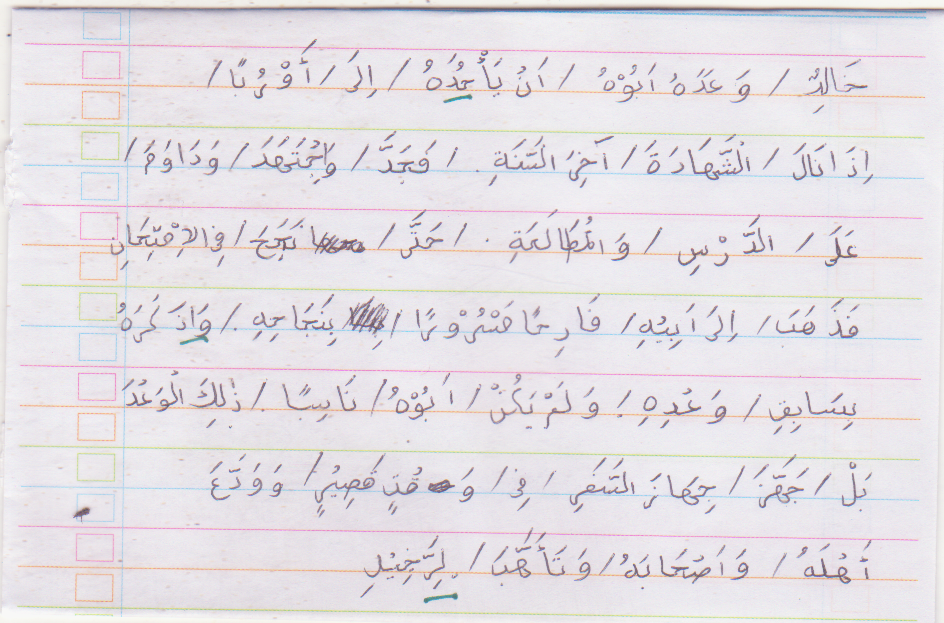 خَالِدٌ / وَعَدَهُ اَبُوْهُ / اَنْ يَأْخُذَهُ / اِلَى / أَوْرُبَّا /
اِذَا نَالَ / الْشَّهَادَةَ / آخِرَ الْسَّنَةِ . / فَجَدَّ / وَاجْتَهَدَ / وَدَاوَمَ /
عَلَى / الدَّرْسِ / وَالْمُطَالَعَةِ . / حَتَّى / نَجَحَ / فِى الاِمْتِحَانِ
فَذَهَبَ / اِلَى اَبِيْهِ / فَارِحًا مَسْرُوْرًا / بِنَجَاحِهِ . / وَاذَكَرَهُ
بِسَابِقِ / وَعْدِهِ . / وَلَمْ يَكُنْ / اَبُوْهُ / نَاسِيًا . / ذٰلِكَ الْوَعْدَ
بَلْ / جَهَّزَ / جِهَازَ السَّفَرِ / فِى / وَقْتٍ قَصِيْرٍ / وَوَدَّعَ
أَهْلَهُ / وَاَصْحَابَهُ / وَتَأَهَّبَ / لِرَّحِيْلِ